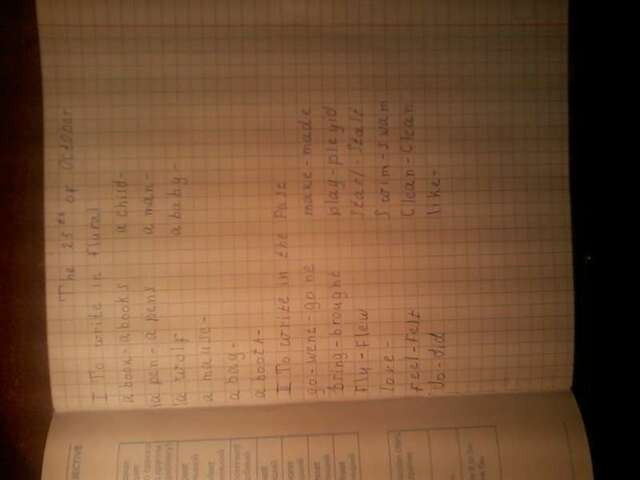 The 25th of October
I To write in flural
a book - a books a child -
a pen - a pens a man -
a wolf a baby -
a mause -
a bay -
a booth -
I To write in the Past
go - went - gone make - made
Bring - brought play - pleyid
Fly - Flew Start - Stalt
love - Swim - swam
feel - felt Clean - Clean
do - did like -